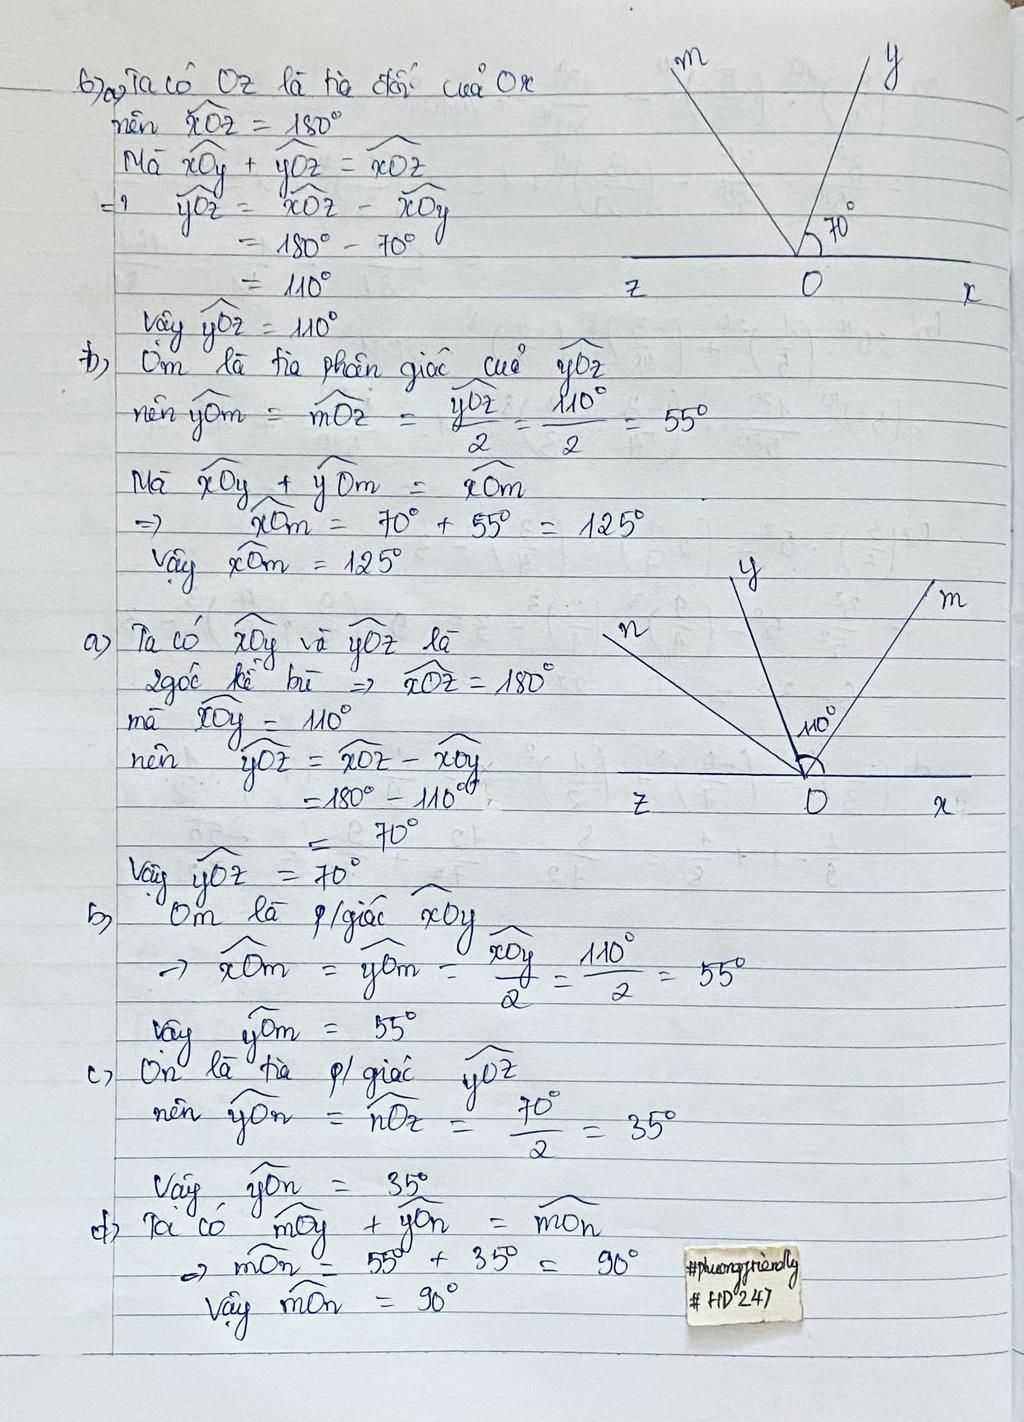 6) a) Ta có Oz là tia đối của Ox
nên xOz = 180°
Mà xOy + yOz = xOz
=> yOz = xOz - xOy
= 180° - 70°
= 110°
Vậy yOz = 110°
b) Om là tia phân giác của yOz
nên yOm = mOz = yOz/2 = 110°/2 = 55°
Mà xOy + yOm = xOm
=> xOm = 70° + 55° = 125°
Vậy xOm = 125°
m
y
70°
z
O
x
a) Ta có xOy và yOz là
2góc kề bù => xOz = 180°
mà xOy = 110°
nên yOz = xOz - xOy
= 180° - 110°
= 70°
Vậy yOz = 70°
b) Om là p/giác xOy
=> xOm = yOm = xOy/2 = 110°/2 = 55°
Vậy yOm = 55°
c) On là tia p/giác yOz
nên yOn = nOz = 70°/2 = 35°
Vậy yOn = 35°
d) Ta có mOy + yOn = mOn
=> mOn = 55° + 35° = 90°
Vậy mOn = 90°
y
n
m
110°
z
O
x
#phuongfriendly
# HD 247